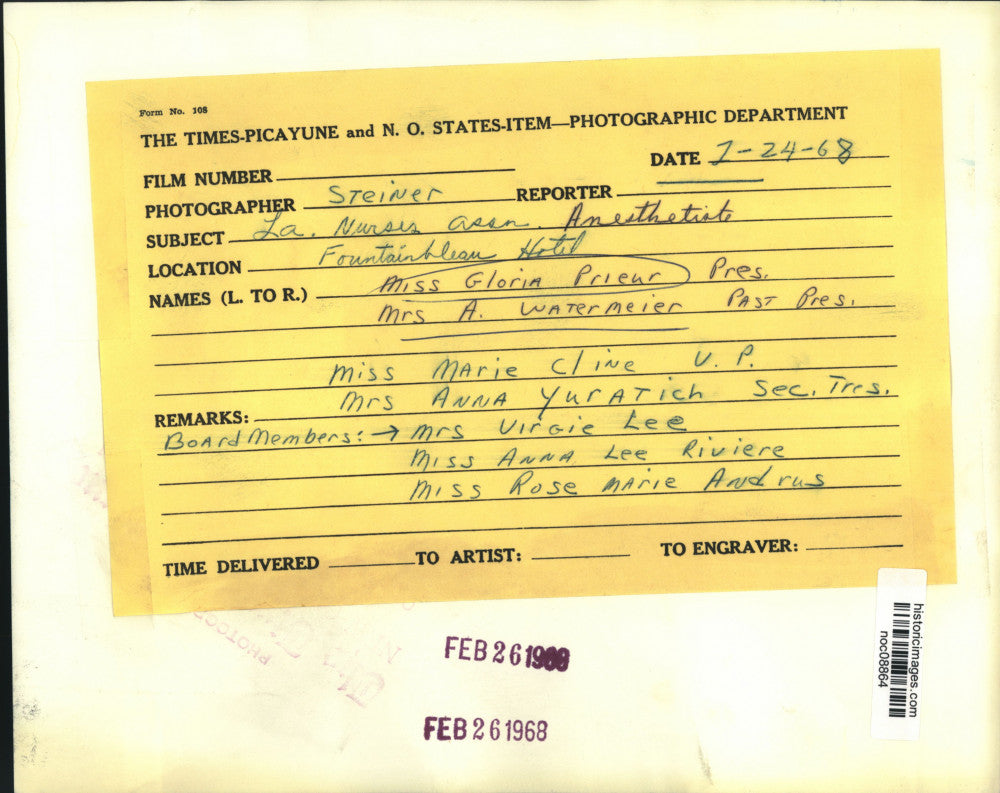 Form No. 108
THE TIMES-PICAYUNE and N. O. STATES-ITEM—PHOTOGRAPHIC DEPARTMENT
DATE 2-24-68
FILM NUMBER
PHOTOGRAPHER Steiner REPORTER
SUBJECT La. Nurses assn. Anesthetists
LOCATION Fountainbleau Hotel
NAMES (L. TO R.) Miss Gloria Prieur Pres.
Mrs A. Watermeier Past Pres.
Miss Marie Cline V. P.
Mrs Anna Yuratich Sec. Tres.
REMARKS:
Board Members: → Mrs Virgie Lee
Miss Anna Lee Riviere
Miss Rose Marie Andrus
TIME DELIVERED TO ARTIST: TO ENGRAVER:
FEB 26 1968
FEB 26 1968
historicimages.com
noc08864